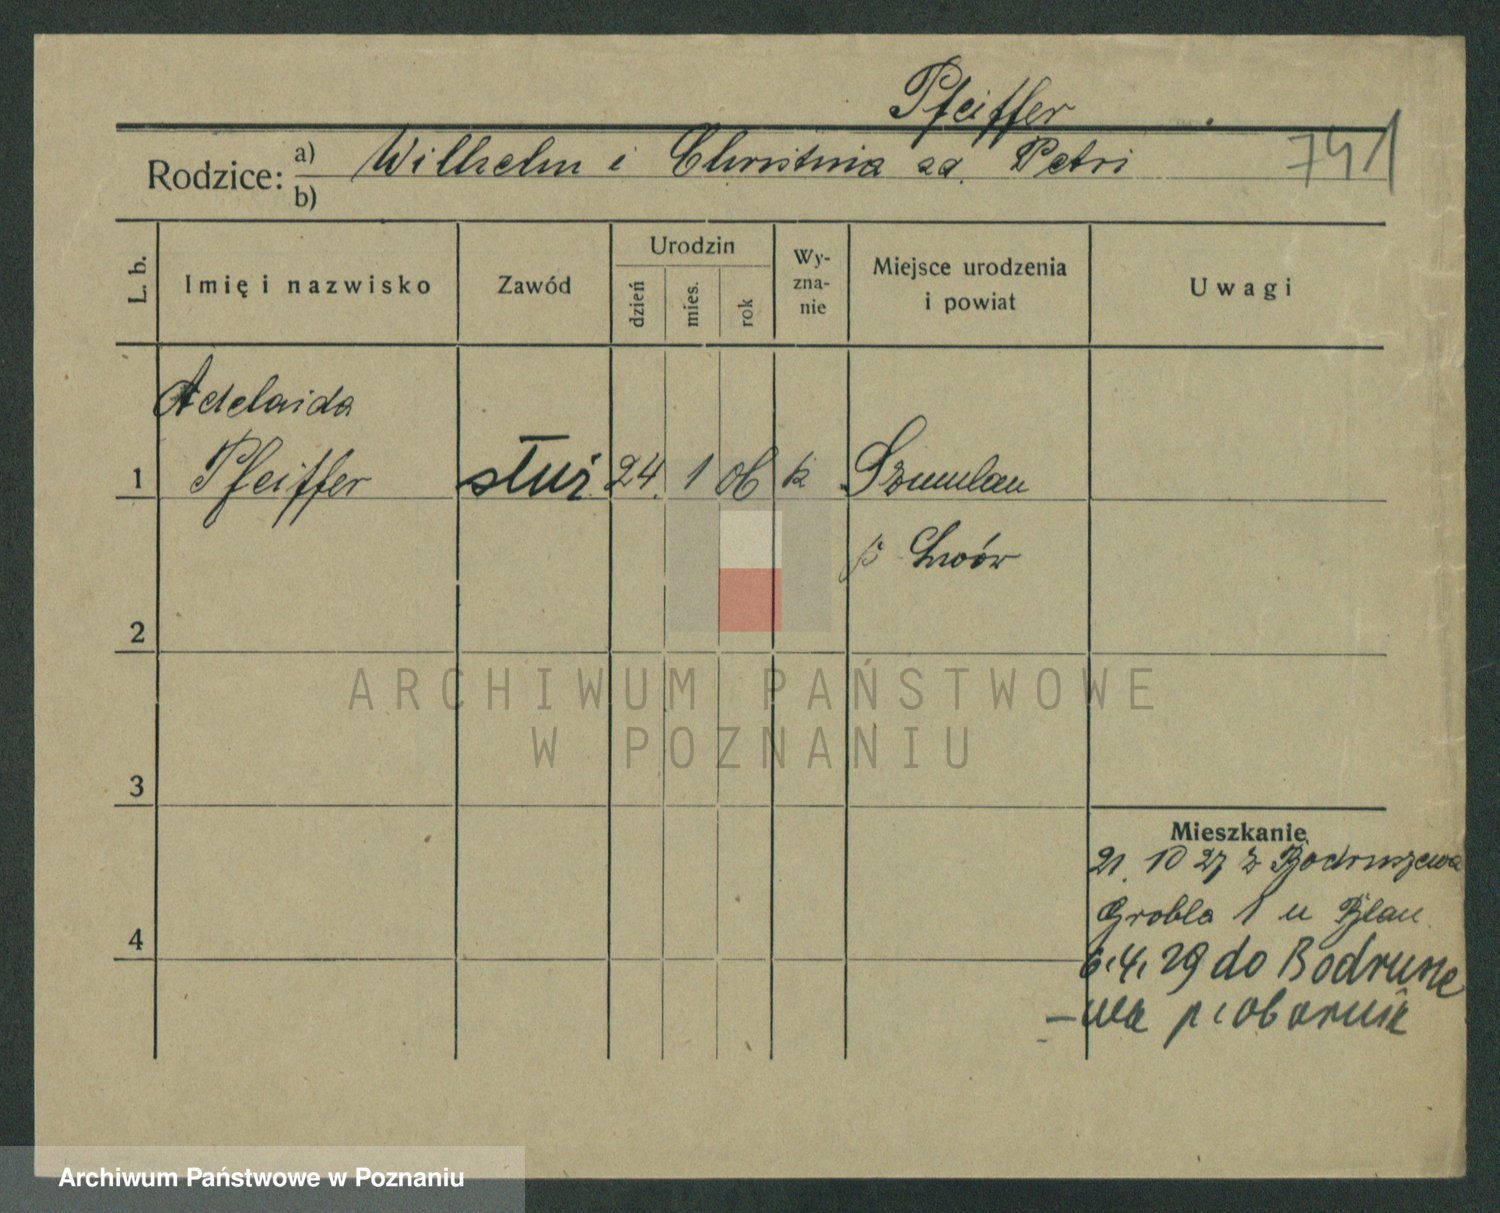 Pfeiffer
741
Rodzice: a) Wilhelm i Christina zd. Petri
b)
L. b.
Imię i nazwisko
Zawód
Urodzin
dzień
mies.
rok
Wy-
zna-
nie
Miejsce urodzenia
i powiat
Uwagi
Adelaida
1 Pfeiffer służ 24. 1 06 k Szumlau
p Lwów
2
ARCHIWUM PAŃSTWOWE
W POZNANIU
3
Mieszkanie
21. 10 27 z Bodruszewa
Grobla 1 u Blau
4
6.4.29 do Bodrusze
-wa p. obornik
Archiwum Państwowe w Poznaniu